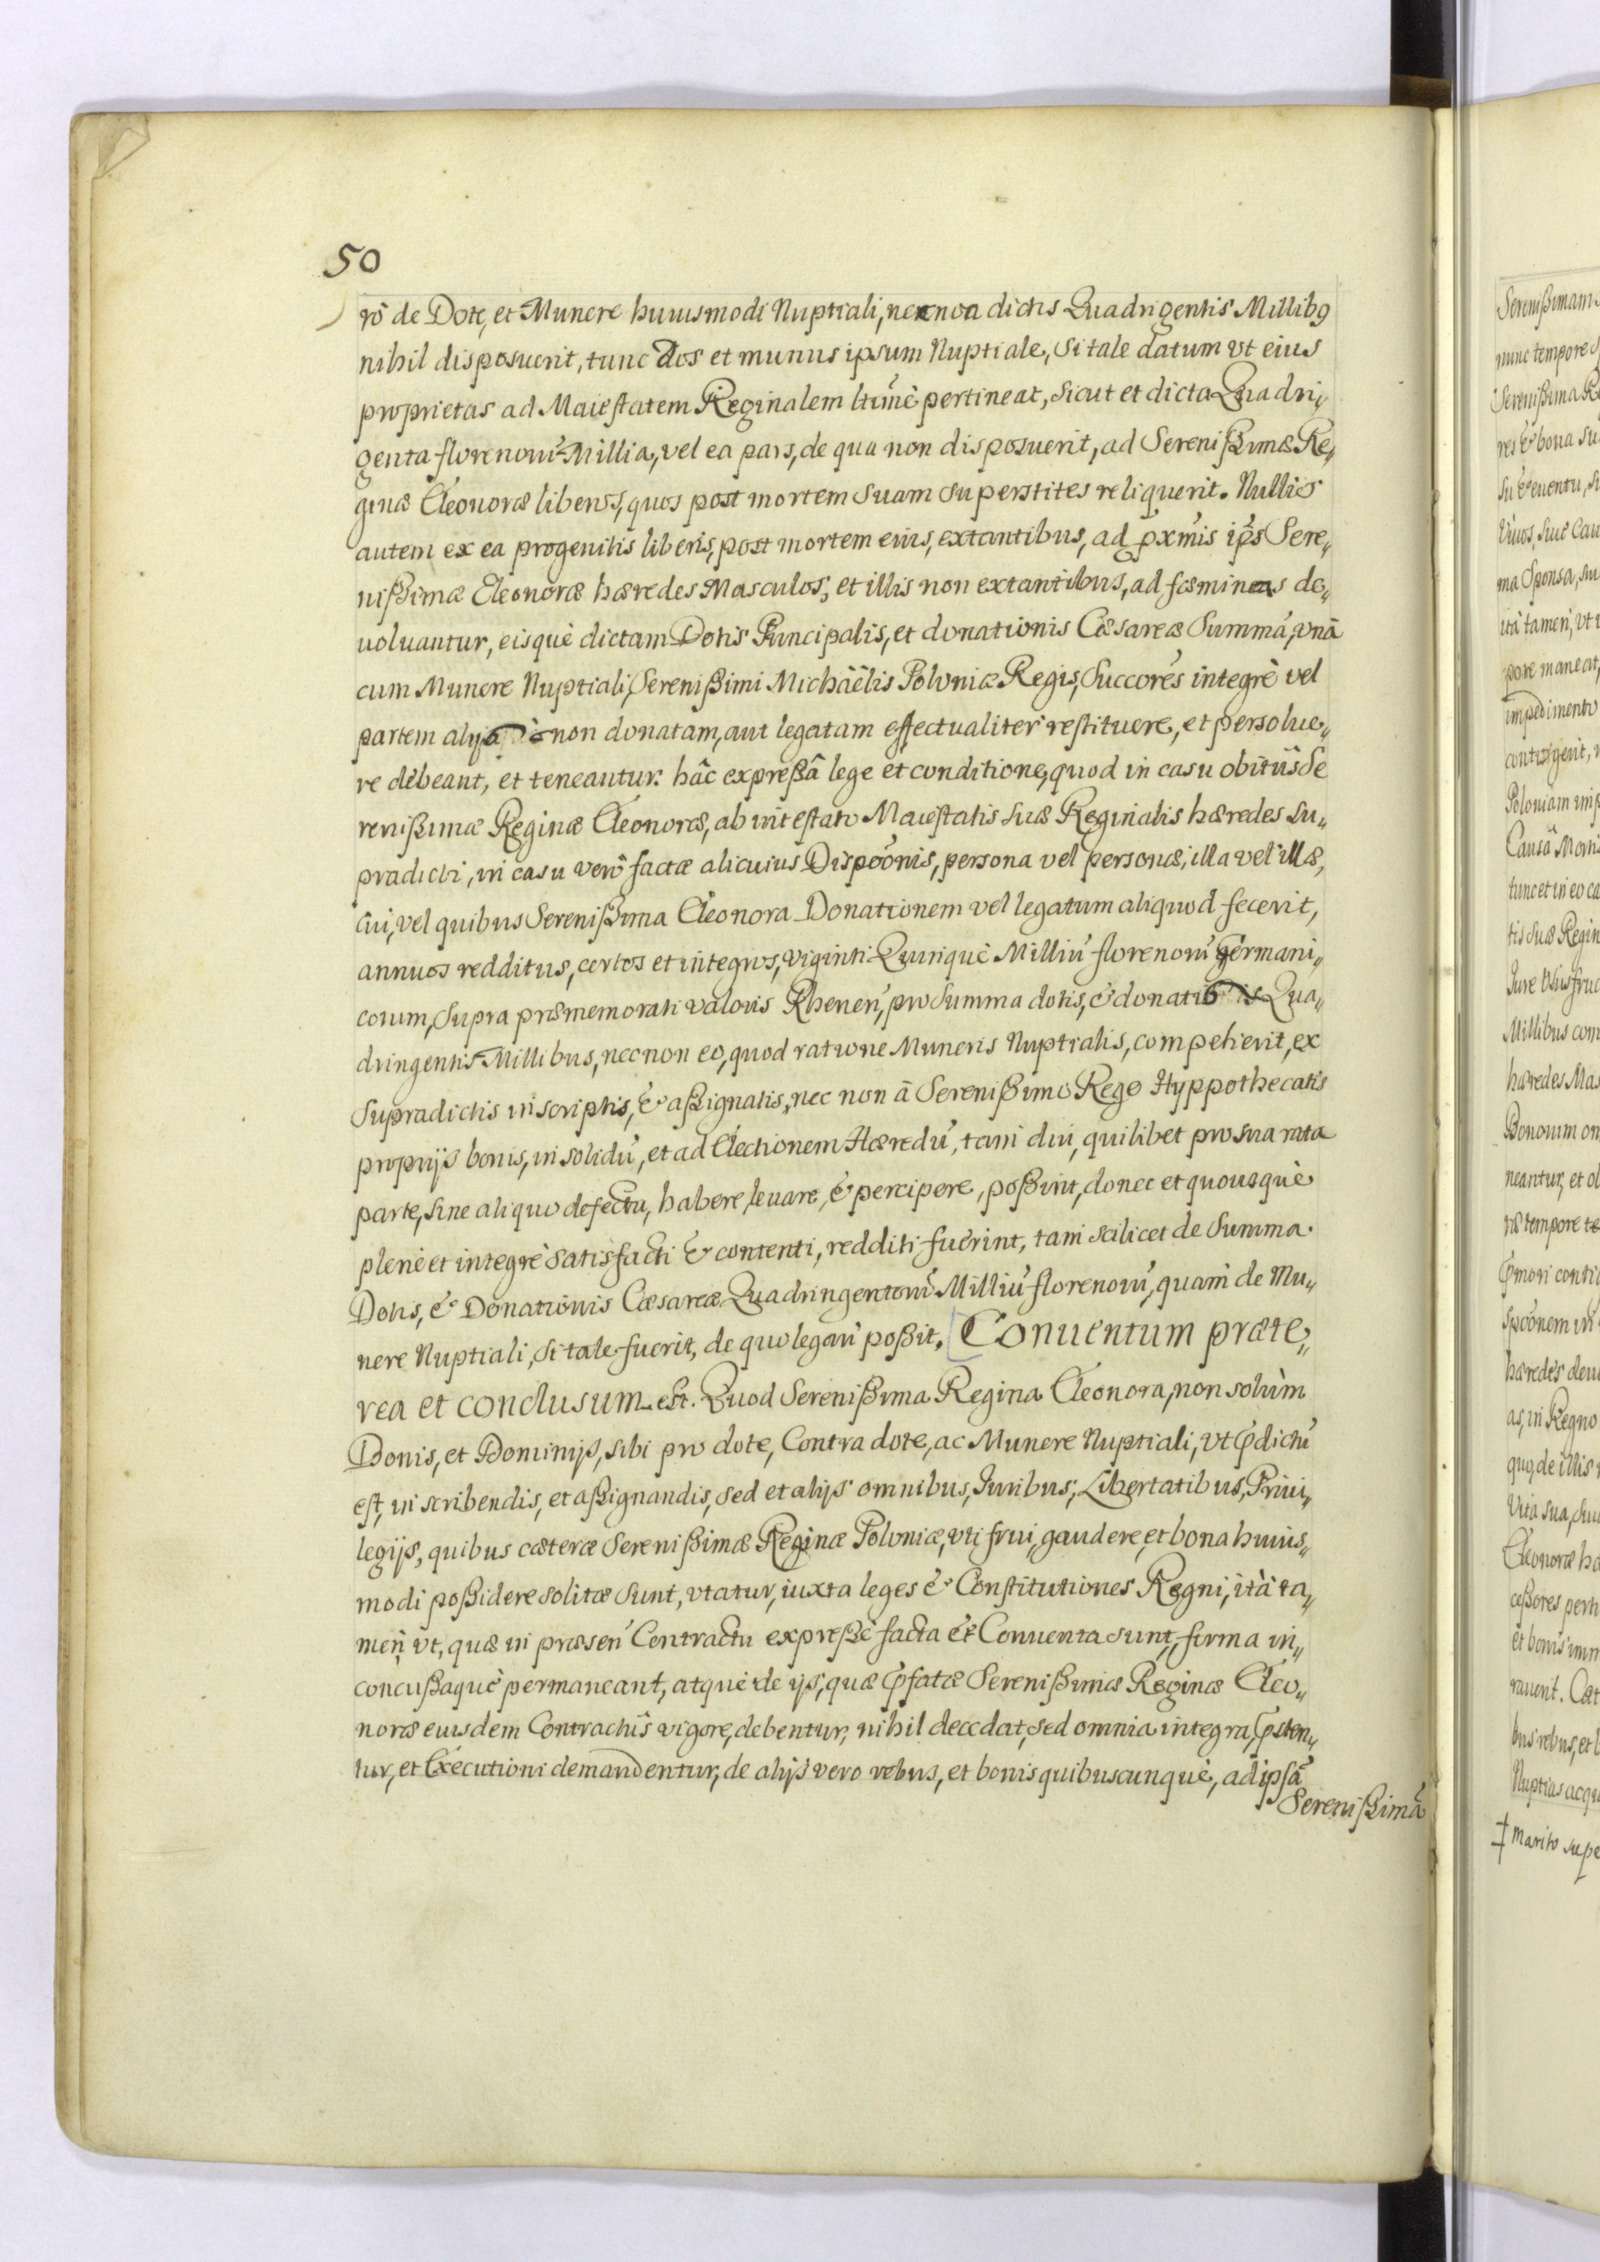 50
rò de Dote, et Munere huiusmodi Nuptiali, necnon dictis Quadrigentis Millibꝰ
nihil disposuerit, tunc dos et munus ipsum Nuptiale, si tale datum vt eius
proprietas ad Maiestatem Reginalem ltimè pertineat, sicut et dicta Quadri„
genta florenorũ Millia, vel ea pars, de qua non disposuerit, ad Serenißimæ Re„
ginæ Eleonoræ liberos, quos post mortem suam superstites reliquerit. Nullis
autem ex ea progenitis liberis, post mortem eius, extantibus, ad pxmis ips Sere„
nißimæ Eleonoræ hæredes Masculos, et illis non extantibus, ad fœmineas de„
uoluantur, eisquè dictam Dotis Principalis, et donationis Cæsareæ Summã, vnã
cum Munere Nuptiali, Serenißimi Michäëlis Poloniæ Regis, Succores integrè vel
partem non donatam, aut legatam effectualiter restituere, et persolue„
re debeant, et teneantur. hâc expreßâ lege et conditione, quod in casu obitûs Se
renißimæ Reginæ Eleonoræ, ab intestato Maiestatis suæ Reginalis hæredes su„
pradicti, in casu verò factæ alicuius Dispoonis, persona vel personæ, illa vel illæ,
cui, vel quibus Serenißima Eleonora Donationem vel legatum aliquod fecerit,
annuos redditus, certos et integros, viginti Quinquè Milliũ florenorũ Germani„
corum, supra præmemorati valoris Rhenen, pro Summa dotis, & donatiois Qua„
dringentis Millibus, necnon eo, quod ratione Muneris Nuptialis, competierit, ex
supradictis inscriptis, & aßignatis, nec non ã Serenißimo Rege Hyppothecatis
propriys bonis, in solidũ, et ad Electionem Hæredũ, tam diu, quilibet pro sua rata
parte, sine aliquo defectu, habere, leuare, & percipere, poßint, donec et quousquè
plenè et integrè satisfacti & contenti, redditi fuerint, tam scilicet de Summa
Dotis, & Donationis Cæsareæ Quadringentorũ Milliũ florenorũ, quam de Mu„
nere Nuptiali, si tale fuerit, de quo legari poßit. [Conuentum præte„
rea et conclusum est. Quod Serenißima Regina Eleonora, non solùm
Donis, et Dominijs, sibi pro dote, Contra dote, ac Munere Nuptiali, vt pdictũ
est, inscribendis, et aßignandis, sed et alijs omnibus, Iuribus, Libertatibus, Priui„
legijs, quibus cæteræ Serenißimæ Reginæ Poloniæ, vti frui, gaudere, et bona huius„
modi poßidere solitæ sunt, vtatur, iuxta leges & Constitutiones Regni, ità ta„
men, vt, quæ in præsen Contractu expreßè facta & Conuenta sunt, firma in„
concußaquè permaneant, atque de ijs, quæ pfatæ Serenißimæ Reginæ Eleo„
noræ eiusdem Contractûs vigore, debentur, nihil decedat, sed omnia integra pstен„
tur, et Executioni demandentur, de alijs vero rebus, et bonis quibuscunquè, ad ipsã
Serenißimã
Serenißimam
nunc tempore
Serenißima Re
res & bona su
su & euentu, su
Viuos, siue Cau
ma Sponsa, su
ità tamen, vt
pore maneat,
impedimento
contigerit,
Poloniam
Causã Mortis
tunc et in eo ca
tis suæ Regin
Iure Vsusfruc
Millibus com
hæredes Mas
Bonorum om
neantur, et ob
ræ tempore te
pmori conti
spoonem in
hæredes deu
as, in Regno
quo, de illis
Vita sua, siu
Eleonoræ hæ
ceßores perti
et bonis imm
rauerit. Cæt
bus rebus, et
Nuptias acqu
‡ Marito supe